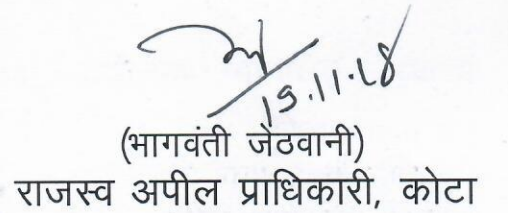 19.11.18
(भागवंती जेठवानी)
राजस्व अपील प्राधिकारी, कोटा